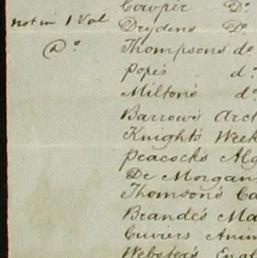 Cowper Do.
not in 1 Vol Drydens Do.
Do. Thompson's do
Pope's do.
Milton's do
Barrow's Arct
Knight's Week
Peacocks Alg
De Morgan
Thomson's Ca
Brande's Ma
Cuviers Anim
Webster's Engl